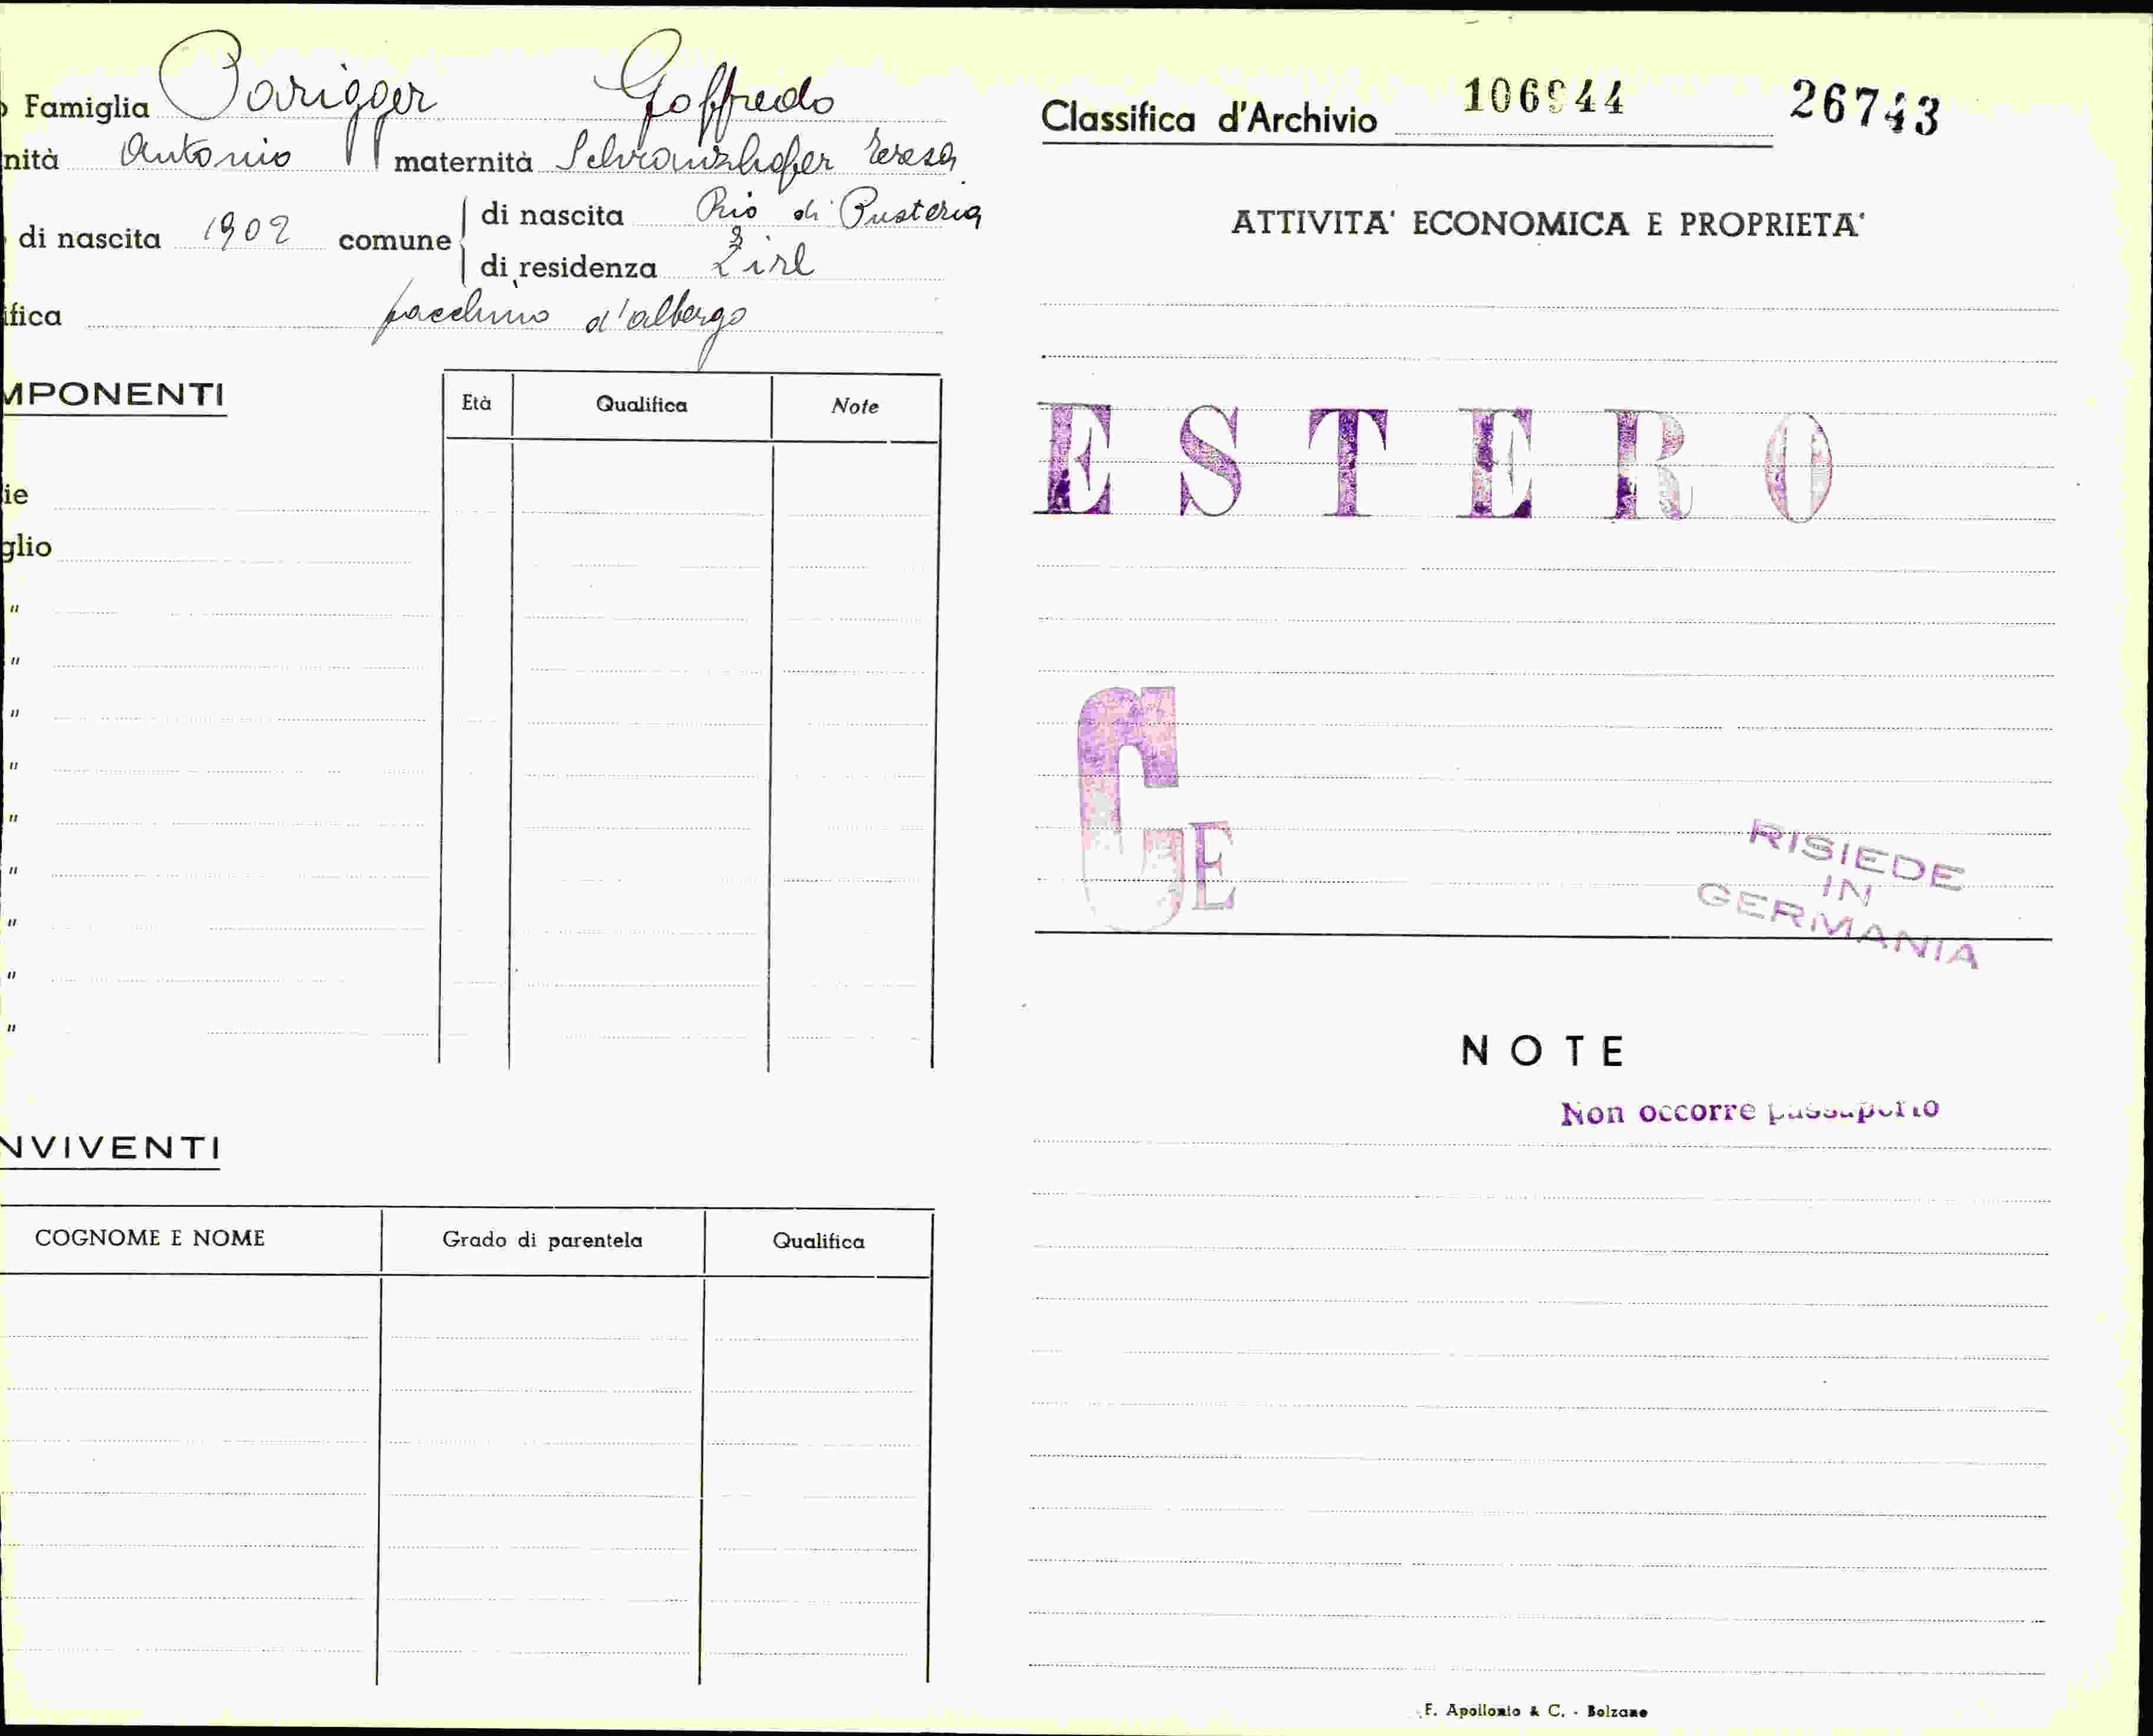 Famiglia Parigger Goffredo
nità Antonio maternità Schranzhofer Teresa
di nascita 1902 comune di nascita Rio di Pusteria
di residenza Zirl
ifica facchino d'albergo
MPONENTI
Età Qualifica Note
ie
glio
"
"
"
"
"
"
"
"
"
NVIVENTI
COGNOME E NOME Grado di parentela Qualifica
Classifica d'Archivio 26743
ATTIVITA' ECONOMICA E PROPRIETA'
ESTERO
GE
RISIEDE
IN
GERMANIA
NOTE
Non occorre passaporto
F. Apollonio & C. - Bolzano